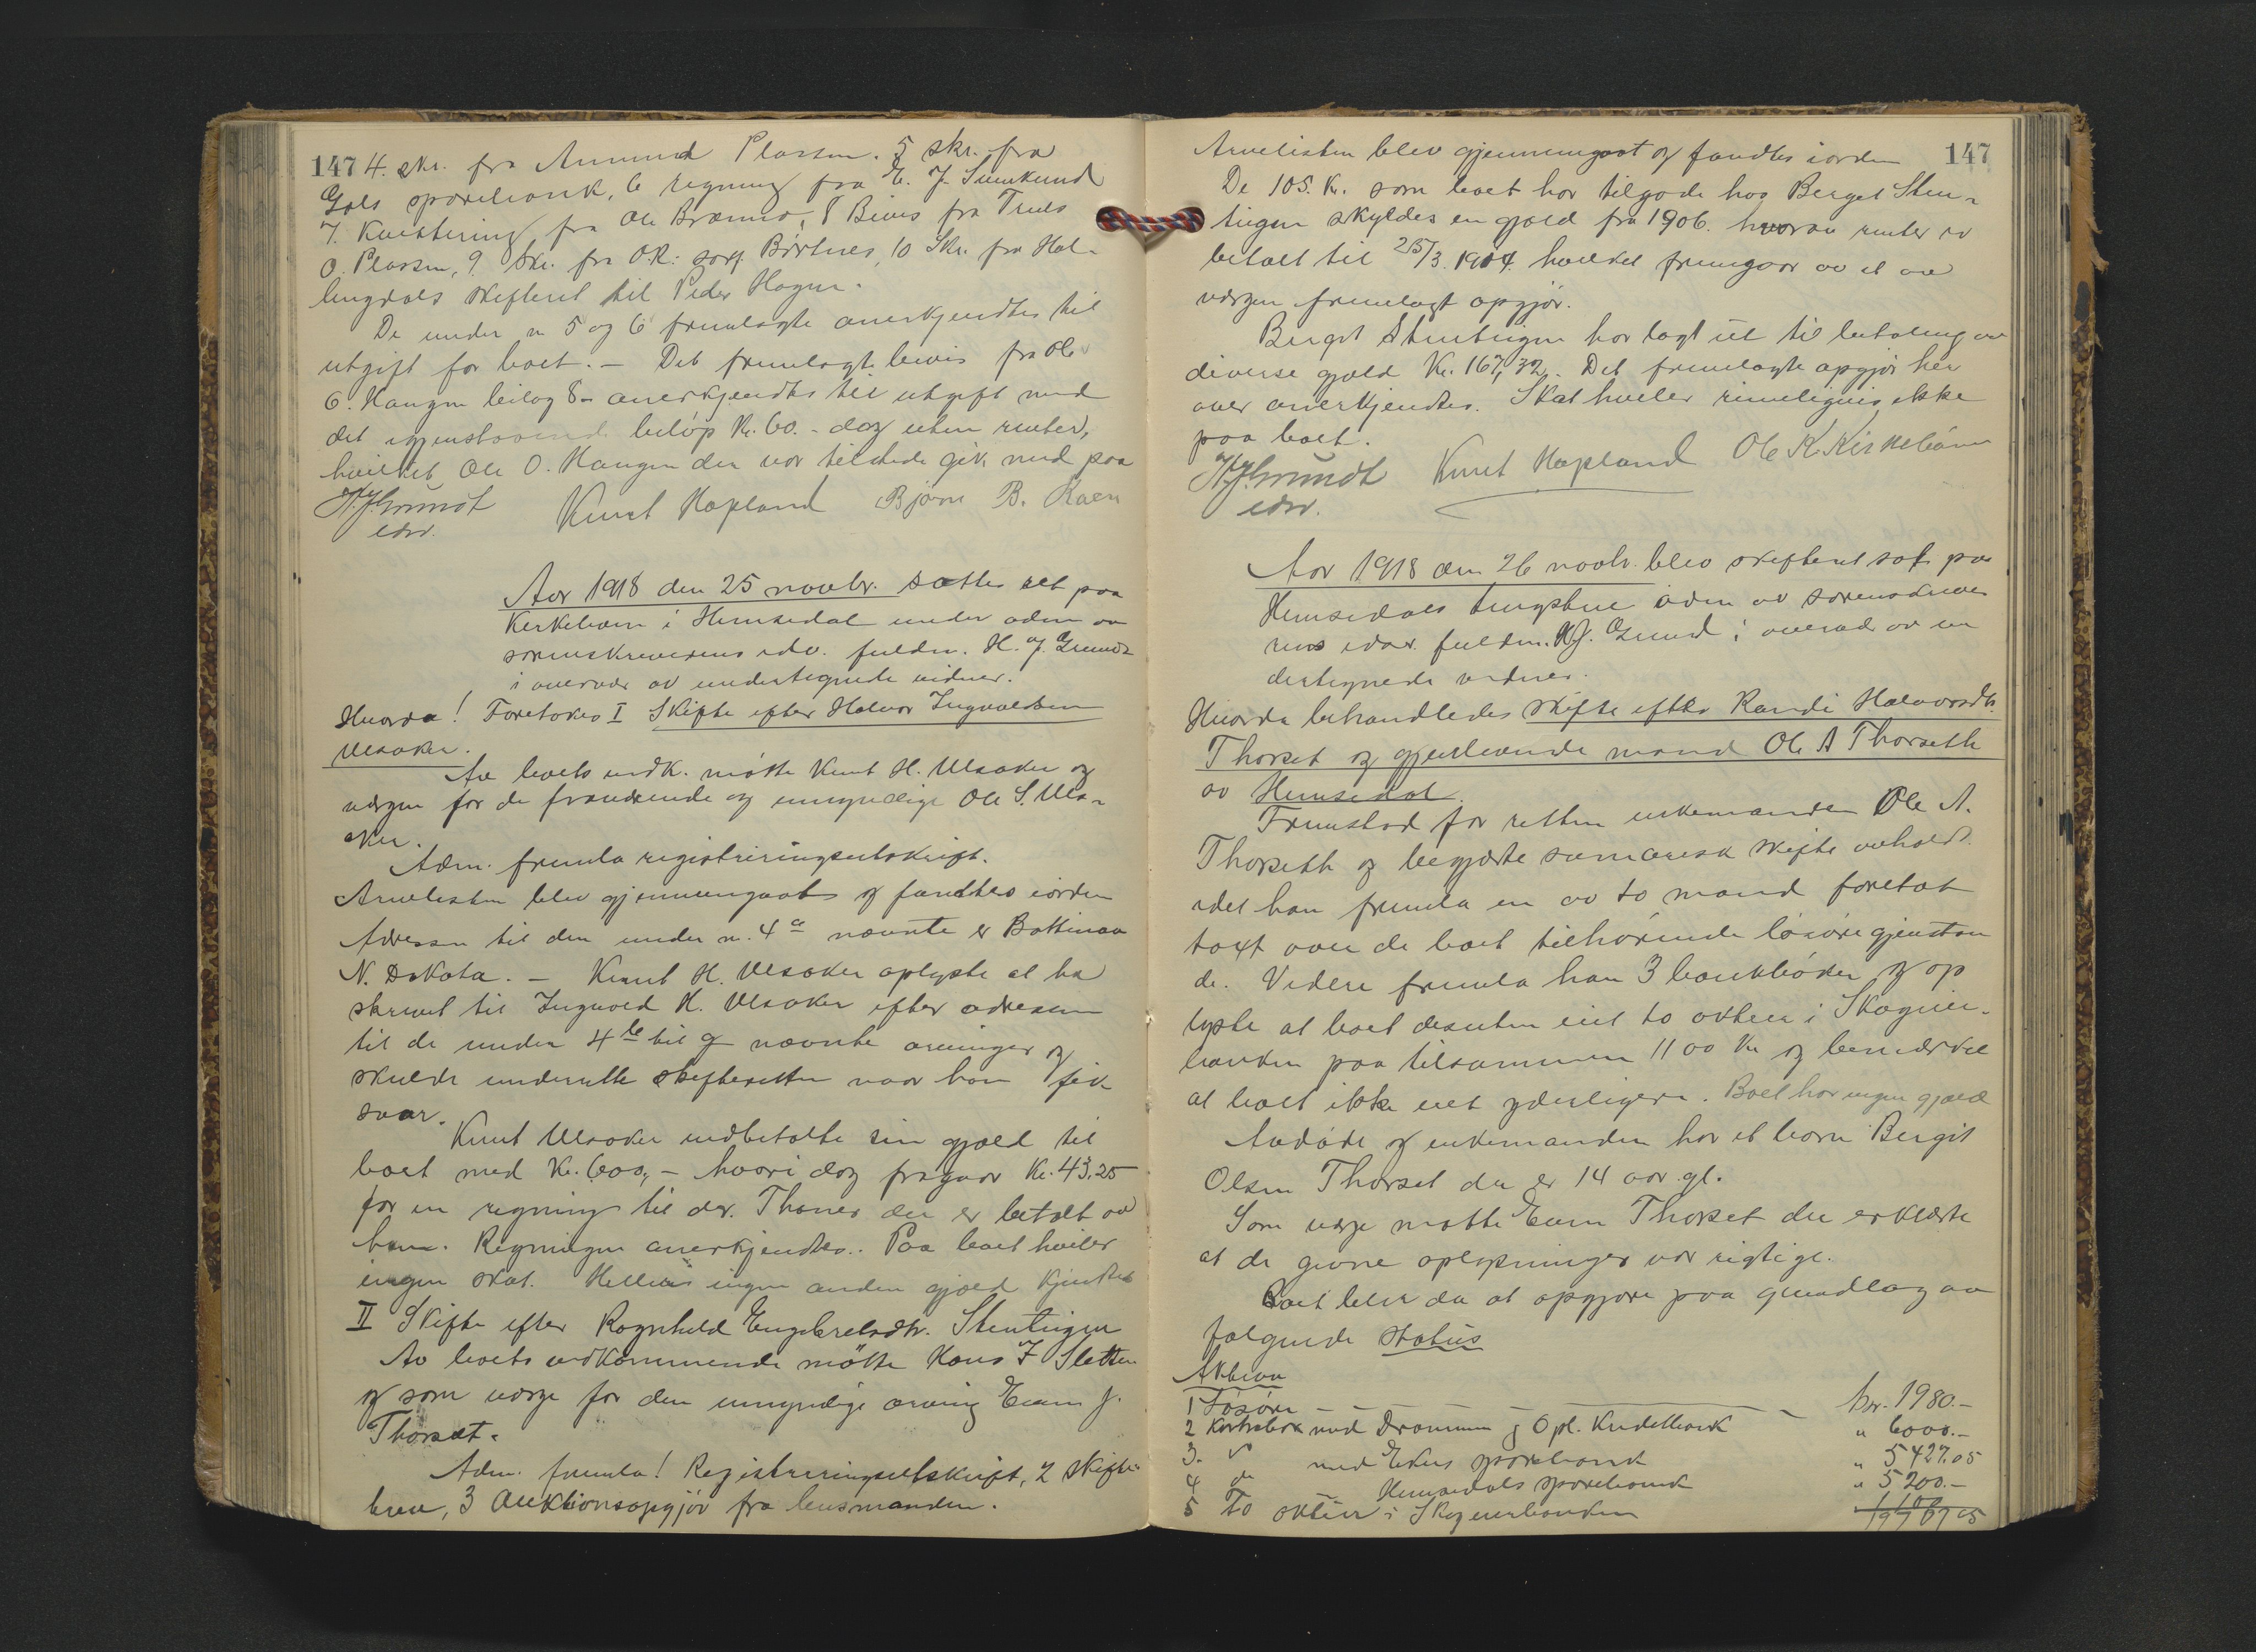 147 4. skr. fra Amund Plassen. 5 skr. fra
Gols sparebank, 6 regning fra E. J.
7. Kvittering fra Ole Brænno, 8 Bevis fra Truls
O. Plassen, 9. skr. fra O.R: sagf. Børtnes, 10 Skr. fra Hal-
lingdals skifteret til Peder Hagen.
De under nr 5 og 6 fremlagte anerkjendtes til
utgift for boet. - Det fremlagte bevis fra Ole
O. Haugen bilag 8 - anerkjendtes til utgift med
det igjenstaaende beløp Kr. 60. - dog uten renter,
hvilket Ole O. Haugen der var tilstede gik med paa
H. J. Grundt Knut Hopland Bjørn B. Kaen
edsv.
Aar 1918 den 25 novbr. sattes ret paa
Kirkebøen i Hemsedal under adm av
sorenskriverens edsv. fuldm. H. J. Grundt
i overvær av undertegnede vidner.
Hvorda! Foretokes I Skifte efter Halvor Ingvaldsen
Ulsaker.
Av boets vedk. møtte Knut H. Ulsaker og
værgen for de fraværende og umyndige Ole S. Ulsa-
ker.
Adm. fremla registreringsutskrift.
Arvelisten blev gjennemgaat og fandtes iorden
Adressen til den under nr. 4 a nævnte er Bottinau
N. Dakota. - Knut H. Ulsaker oplyste at ha
skrevet til Ingvald H. Ulsaker efter adressen
til de under 4 b til g nævnte arvinger og
skulde underrette skifteretten naar han fik
svar.
Knut Ulsaker indbetalte sin gjæld til
boet med Kr. 600,- hvori dog fragaar Kr. 43.25
for en regning til dr. Thaner der er betalt av
ham. Regningen anerkjendtes. Paa boet hviler
ingen skat. Hellers ingen anden gjæld kjendtes
II Skifte efter Ragnhild Engebretsdtr. Stentrigen
Av boets vedkommende møtte Hans J Sletten
og som værge for den umyndige arving Even J.
Thorset.
Adm. fremla! Registreringsutskrift, 2 skifte-
breve, 3 Auktionsopgjør fra lensmanden.
Arvelisten blev gjennemgaat og fandtes iorden 147
De 105. Kr. som boet har tilgode hos Berget Sten-
tugen skyldes en gjæld fra 1906. hvorav renter er
betalt til 25/3. 1914 hvilket fremgaar av et av
værgen fremlagt opgjør.
Berget Stentrigen har lagt ut til betaling av
diverse gjæld Kr. 167,32. Det fremlagte opgjør her
over anerkjendtes. Skat hviler rimeligvis ikke
paa boet.
H. J. Grundt Knut Hopland Ole K. Kirkebøen
edsv.
Aar 1918 den 26 novbr. blev skifteret sat paa
Hemsedals tingstue adm av sorenskrive
rens edsv. fuldm. H. J. Grundt i overvær av un
dertegnede vidner.
Hvorda behandledes skifte efter Randi Halvorsdtr.
Thorset og gjenlevende mand Ole A Thorseth
av Hemsedal.
Fremstod for retten enkemanden Ole A.
Thorseth og begjærte sumarisk skifte avholdt.
idet han fremla en av to mænd foretat
taxt over de boet tilhørende løsøregjenstan
de. Videre fremla han 3 bankbøker og op
lyste at boet desuten eiet to aktier i Skogeier-
banken paa tilsammen 1100 Kr og bemærket
at boet ikke eiet yderligere. Boet har ingen gjæld
Avdøde og enkemanden har et barn Bergit
Olsen Thorset der er 14 aar gl.
Som værge møtte Even Thorset der erklærte
at de givne oplysninger var rigtige.
Boet blev da at opgjøre paa grundlag av
følgende status
Aktiva
1 Løsøre - - - - Kr. 1980.-
2 Kontrabok med Drammen og Opl. Kreditbank " 6000.-
3. " med Ekers sparebank " 5427.05
4 do Hemsedals sparebank " 5200.-
5 To aktier i Skogeierbanken 1100